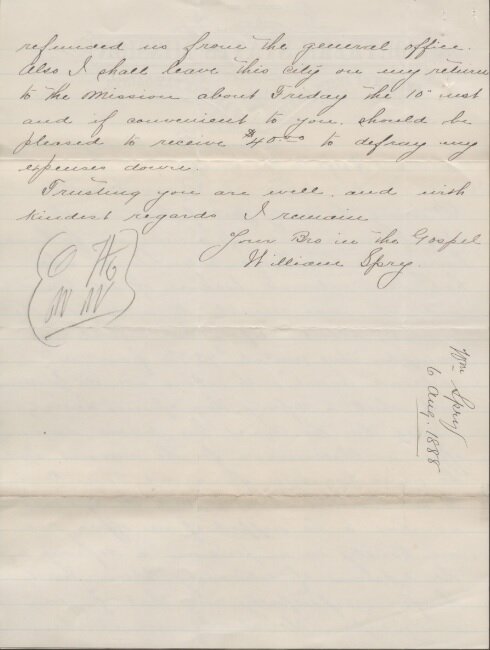 refunded us from the general office.
Also I shall leave this city on my return
to the Mission about Friday the 10" inst
and if convenient to you, should be
pleased to receive $40.00 to defray my
expenses down.
Trusting you are well, and with
kindest regards I remain
Your Bro in the Gospel
William Spry.
Wm Spry
6 Aug. 1888